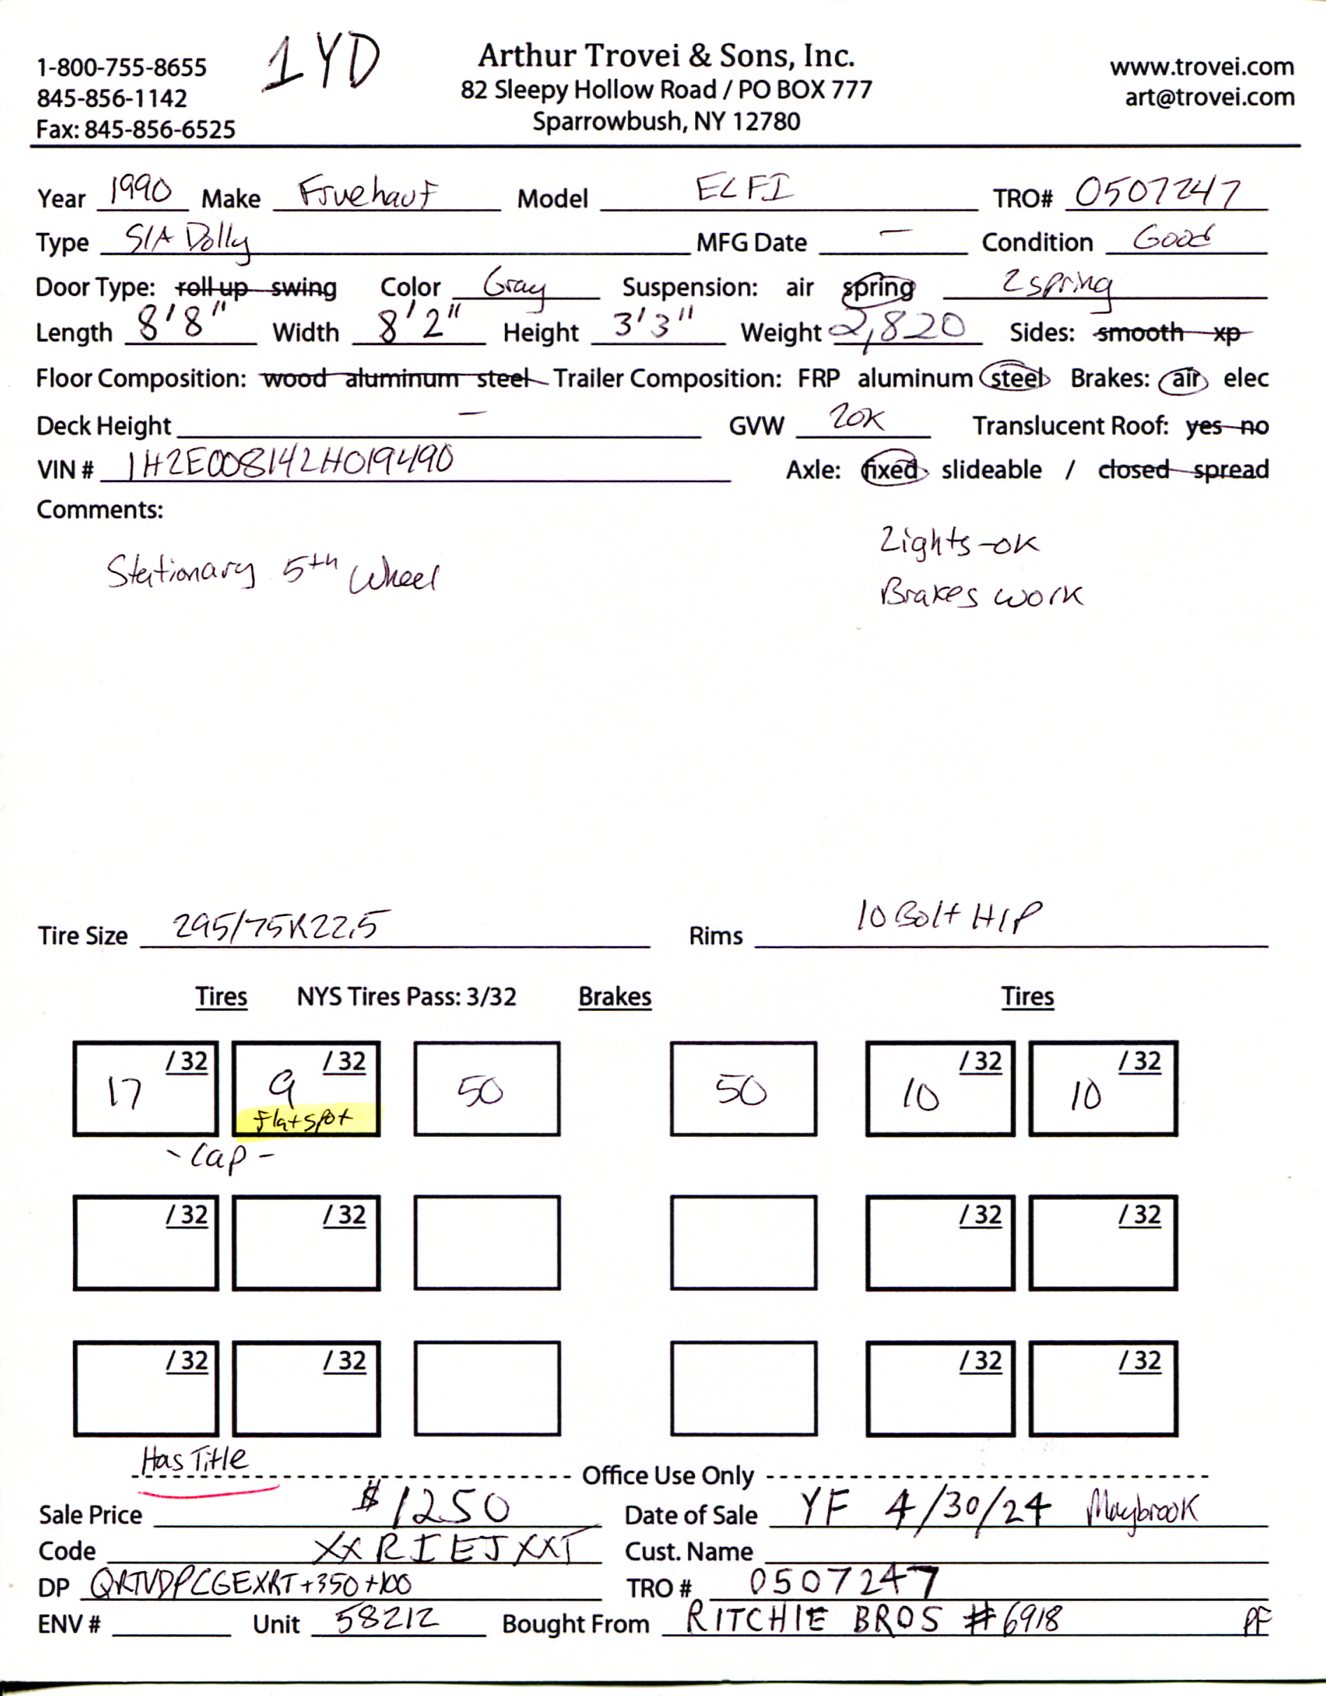 1-800-755-8655
845-856-1142
Fax: 845-856-6525
1YD
Arthur Trovei & Sons, Inc.
82 Sleepy Hollow Road / PO BOX 777
Sparrowbush, NY 12780
www.trovei.com
art@trovei.com
Year 1990 Make Fruehauf Model ELFI TRO# 0507247
Type S/A Dolly MFG Date — Condition Good
Door Type: roll up swing Color Gray Suspension: air spring 2 spring
Length 8'8" Width 8'2" Height 3'3" Weight 2,820 Sides: smooth xp
Floor Composition: wood aluminum steel Trailer Composition: FRP aluminum steel Brakes: air elec
Deck Height — GVW 20K Translucent Roof: yes no
VIN # 1H2E008142H019490 Axle: fixed slideable / closed spread
Comments:
Stationary 5th Wheel
Lights-OK
Brakes work
Tire Size 295/75R22.5 Rims 10 Bolt H/P
Tires NYS Tires Pass: 3/32 Brakes Tires
17 /32 9 /32 50 50 10 /32 10 /32
Flat spot
- Cap -
/ 32 / 32 / 32 / 32
/ 32 / 32 / 32 / 32
Has Title
Office Use Only
Sale Price $1250 Date of Sale YF 4/30/24 Maybrook
Code XXRIEJXXT Cust. Name
DP QRTVDPCGEXRT+350+100 TRO # 0507247
ENV # Unit 58212 Bought From RITCHIE BROS #6918 PF